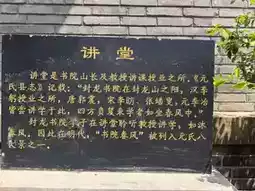 讲堂
讲堂是书院山长及教授讲课授业之所,《元
氏县志》记载:“封龙书院在封龙山之阳,汉李
躬授业之所,唐郭震,宋李昉、张璠叟,元李冶
皆尝讲学于此,四方负笈来学者如坐春风中。”
封龙书院学子在讲堂聆听教授讲学,如沐
春风,因此在明代,“书院春风”被列入元氏八
景之一。